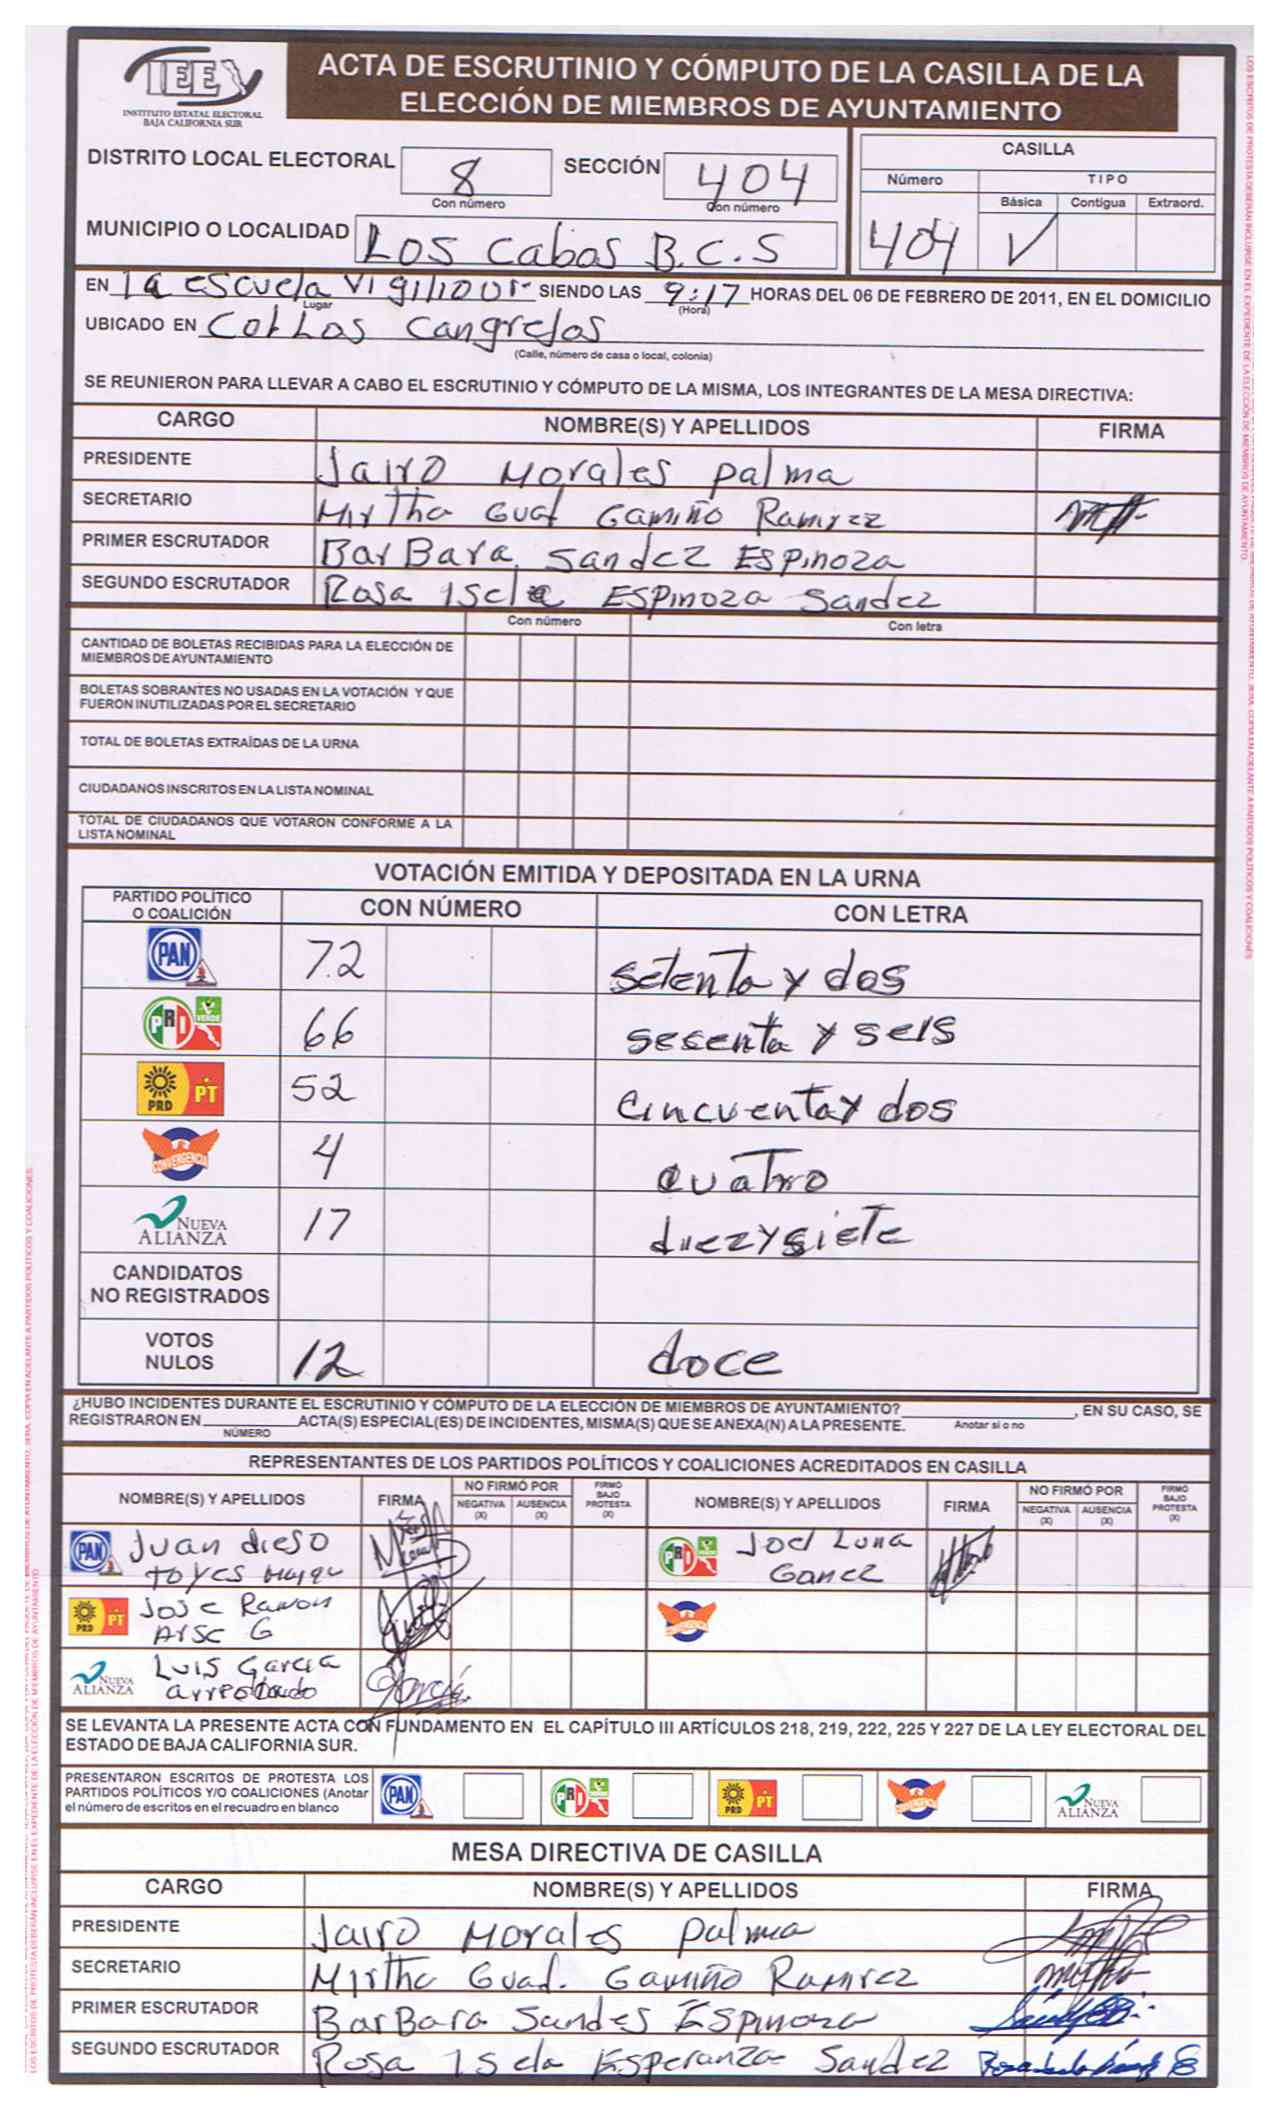 IEE
INSTITUTO ESTATAL ELECTORAL
BAJA CALIFORNIA SUR
ACTA DE ESCRUTINIO Y CÓMPUTO DE LA CASILLA DE LA
ELECCIÓN DE MIEMBROS DE AYUNTAMIENTO
DISTRITO LOCAL ELECTORAL 8 SECCIÓN 404
Con número Con número
MUNICIPIO O LOCALIDAD Los Cabos B.C.S
CASILLA
Número TIPO
Básica Contigua Extraord.
404 ✓
EN la escuela SIENDO LAS 9:17 HORAS DEL 06 DE FEBRERO DE 2011, EN EL DOMICILIO
Lugar (Hora)
UBICADO EN Col Los Cangrejos
(Calle, número de casa o local, colonia)
SE REUNIERON PARA LLEVAR A CABO EL ESCRUTINIO Y CÓMPUTO DE LA MISMA, LOS INTEGRANTES DE LA MESA DIRECTIVA:
CARGO NOMBRE(S) Y APELLIDOS FIRMA
PRESIDENTE Jairo Morales Palma
SECRETARIO Mirtha Guad Gamiño Ramirez
PRIMER ESCRUTADOR BarBara Sandez Espinoza
SEGUNDO ESCRUTADOR Rosa Isela Espinoza Sandez
Con número Con letra
CANTIDAD DE BOLETAS RECIBIDAS PARA LA ELECCIÓN DE
MIEMBROS DE AYUNTAMIENTO
BOLETAS SOBRANTES NO USADAS EN LA VOTACIÓN Y QUE
FUERON INUTILIZADAS POR EL SECRETARIO
TOTAL DE BOLETAS EXTRAÍDAS DE LA URNA
CIUDADANOS INSCRITOS EN LA LISTA NOMINAL
TOTAL DE CIUDADANOS QUE VOTARON CONFORME A LA
LISTA NOMINAL
VOTACIÓN EMITIDA Y DEPOSITADA EN LA URNA
PARTIDO POLÍTICO
O COALICIÓN CON NÚMERO CON LETRA
PAN 72 setenta y dos
PRI VERDE 66 sesenta y seis
PRD PT 52 cincuenta y dos
CONVERGENCIA 4 cuatro
NUEVA ALIANZA 17 diezysiete
CANDIDATOS
NO REGISTRADOS
VOTOS
NULOS 12 doce
¿HUBO INCIDENTES DURANTE EL ESCRUTINIO Y CÓMPUTO DE LA ELECCIÓN DE MIEMBROS DE AYUNTAMIENTO? , EN SU CASO, SE
REGISTRARON EN ACTA(S) ESPECIAL(ES) DE INCIDENTES, MISMA(S) QUE SE ANEXA(N) A LA PRESENTE. Anotar si o no
NÚMERO
REPRESENTANTES DE LOS PARTIDOS POLÍTICOS Y COALICIONES ACREDITADOS EN CASILLA
NOMBRE(S) Y APELLIDOS FIRMA NO FIRMÓ POR NEGATIVA (X) AUSENCIA (X) FIRMÓ BAJO PROTESTA (X) NOMBRE(S) Y APELLIDOS FIRMA NO FIRMÓ POR NEGATIVA (X) AUSENCIA (X) FIRMÓ BAJO PROTESTA (X)
PAN Juan Diego PRI Joel Luna
Gomez
PRD PT Jose Ramon CONVERGENCIA
Arse G
NUEVA ALIANZA Luis Garcia
arredondo
SE LEVANTA LA PRESENTE ACTA CON FUNDAMENTO EN EL CAPÍTULO III ARTÍCULOS 218, 219, 222, 225 Y 227 DE LA LEY ELECTORAL DEL
ESTADO DE BAJA CALIFORNIA SUR.
PRESENTARON ESCRITOS DE PROTESTA LOS
PARTIDOS POLÍTICOS Y/O COALICIONES (Anotar
el número de escritos en el recuadro en blanco
PAN PRI PRD PT CONVERGENCIA NUEVA ALIANZA
MESA DIRECTIVA DE CASILLA
CARGO NOMBRE(S) Y APELLIDOS FIRMA
PRESIDENTE Jairo Morales Palma
SECRETARIO Mirtha Guad. Gamiño Ramirez
PRIMER ESCRUTADOR BarBara Sandes Espinoza
SEGUNDO ESCRUTADOR Rosa Isela Esperanza Sandez